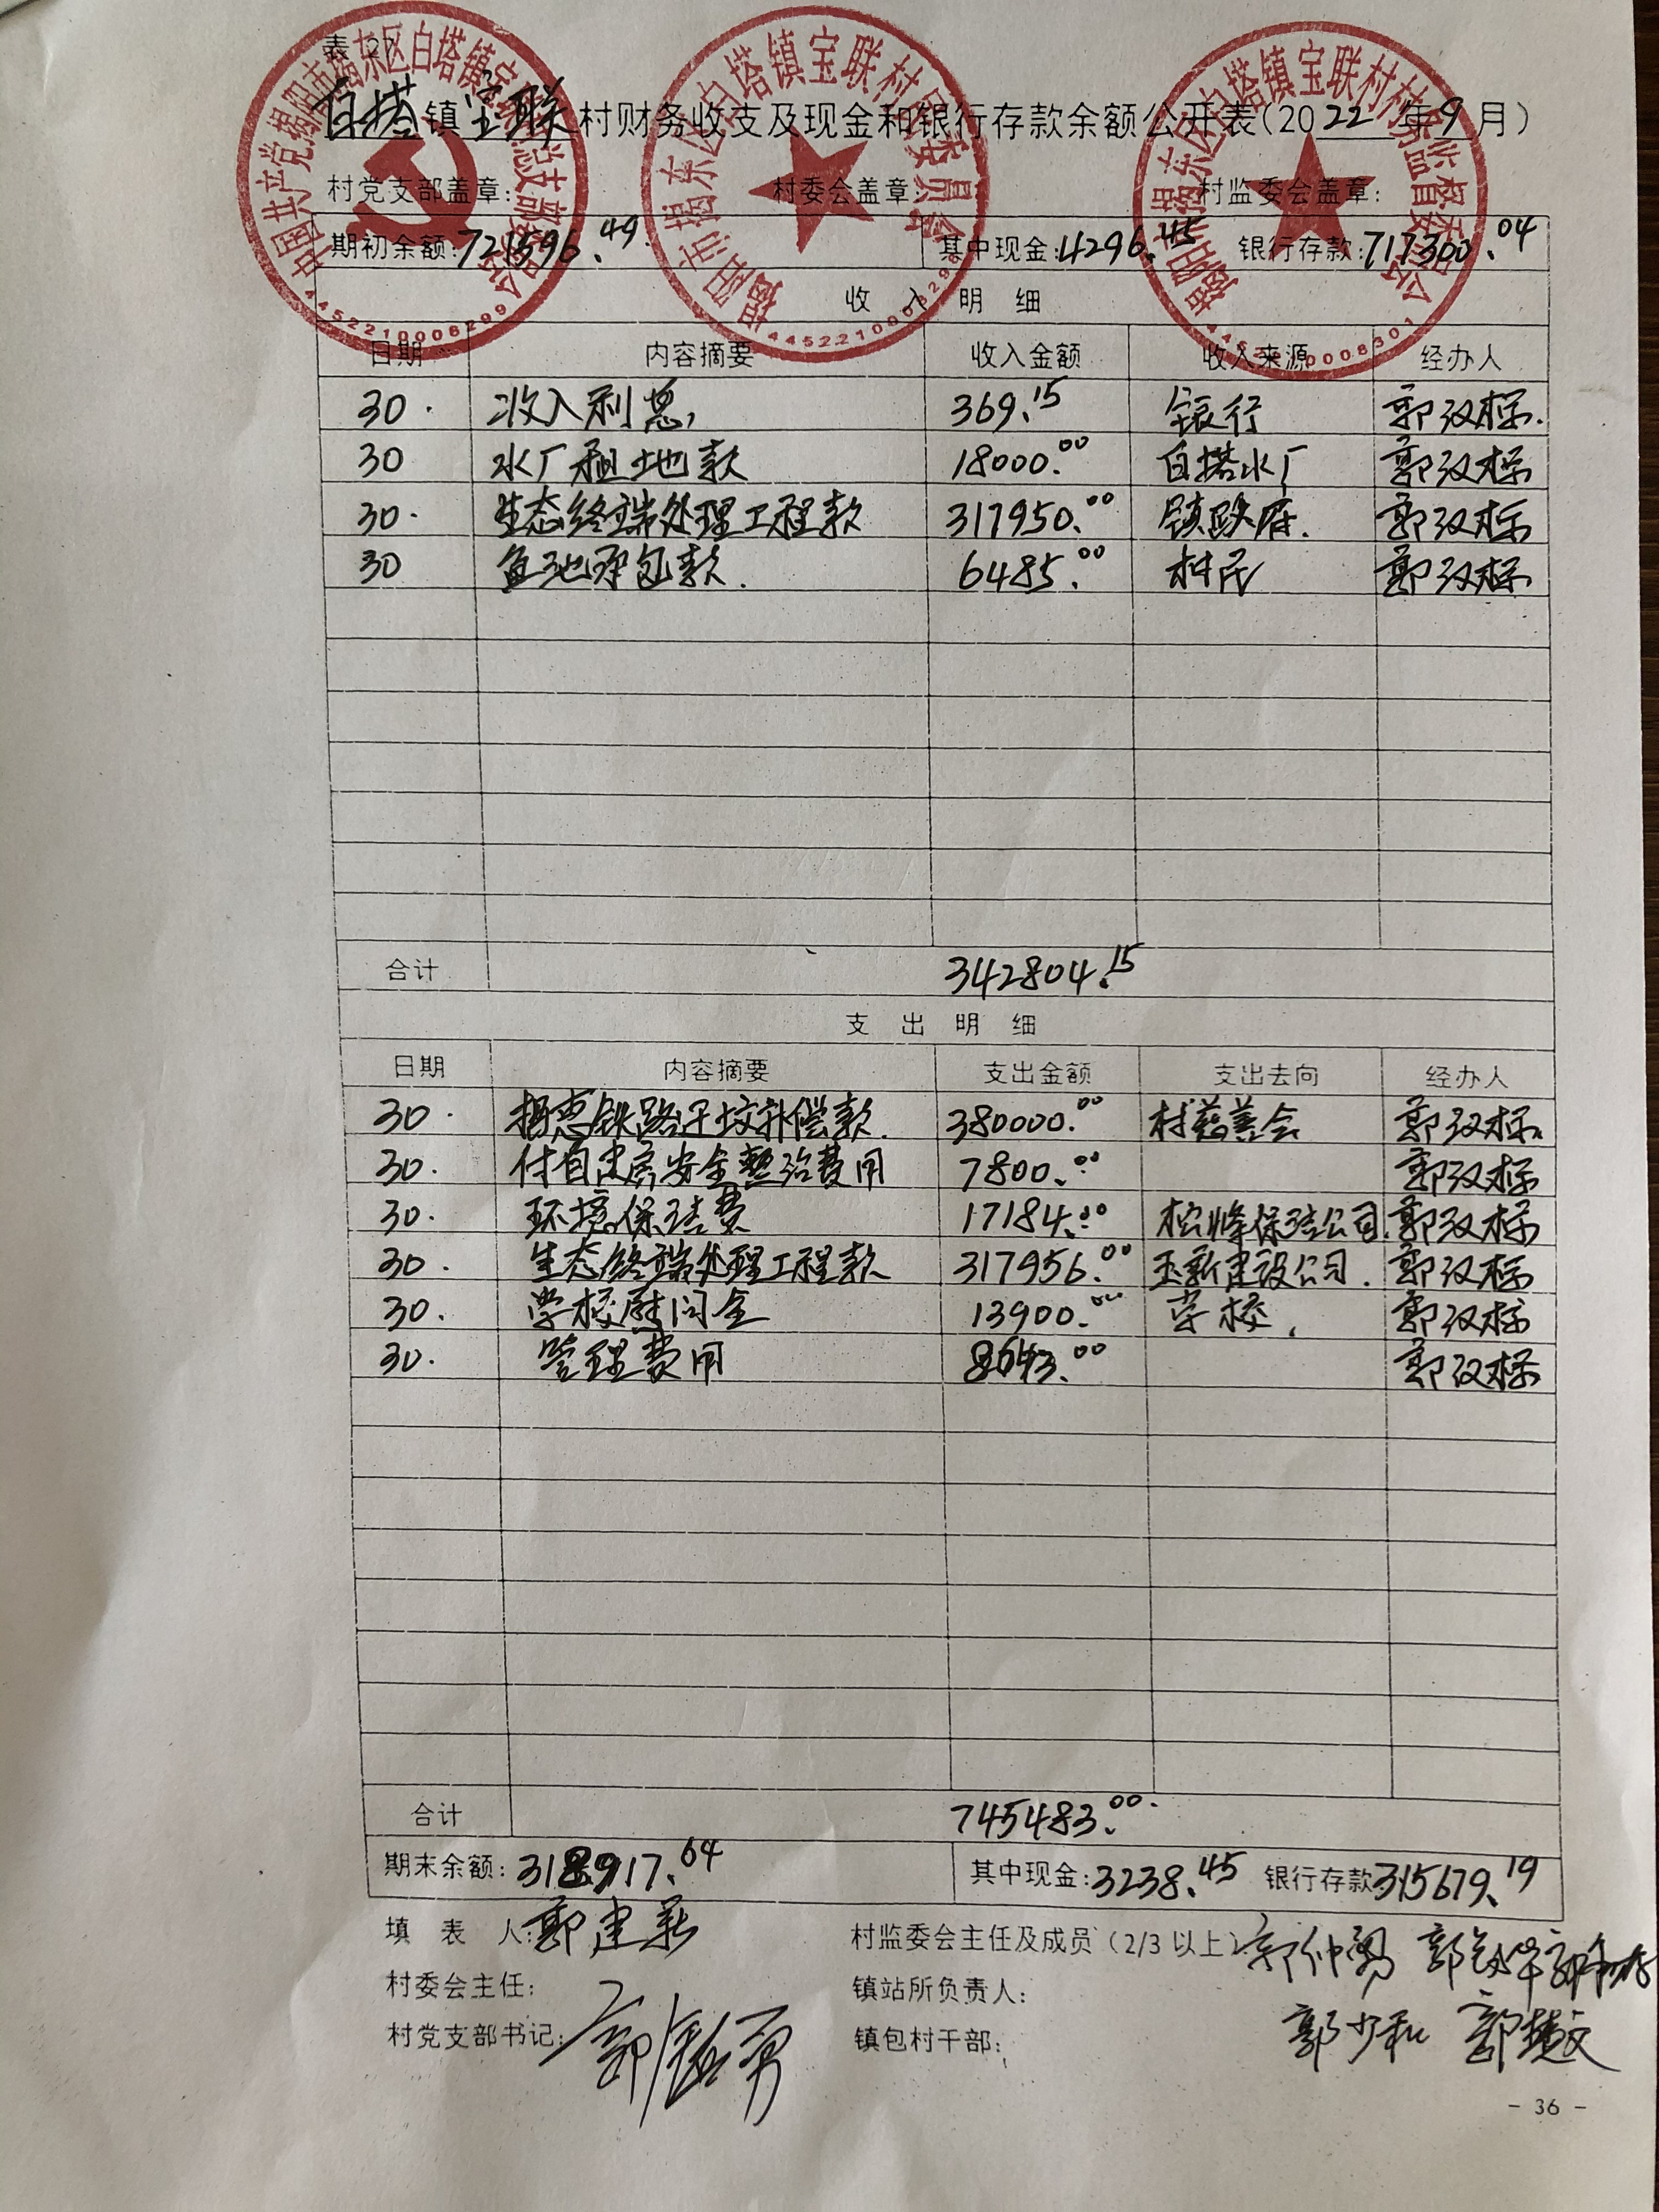 表 27
白塔镇宝联村财务收支及现金和银行存款余额公开表(2022年9月)
村党支部盖章: 村委会盖章: 村监委会盖章:
期初余额:721596.49 其中现金:4296.45 银行存款:717300.04
收 入 明 细
日期 内容摘要 收入金额 收入来源 经办人
30. 收入利息 369.15 银行 郭汉标.
30 水厂租土地款 18000.00 白塔水厂 郭汉标
30. 生态终端处理工程款 317950.00 镇政府. 郭汉标
30 鱼池承包款. 6485.00 村民 郭汉标
合计 342804.15
支 出 明 细
日期 内容摘要 支出金额 支出去向 经办人
30. 揭惠铁路迁坟补偿款. 380000.00 村慈善会 郭汉标
30. 付自建房安全整治费用 7800.00 郭汉标
30. 环境保洁费 17184.00 松峰保洁公司 郭汉标
30. 生态终端处理工程款 317956.00 玉新建设公司. 郭汉标
30. 学校慰问金 13900.00 学校. 郭汉标
30. 管理费用 8643.00 郭汉标
合计 745483.00
期末余额:318917.64 其中现金:3238.45 银行存款315679.19
填 表 人:郭建新 村监委会主任及成员(2/3以上) 郭仲勇
村委会主任: 镇站所负责人: 郭少和 郭楚文
村党支部书记: 镇包村干部:
- 36 -
4452210008299
4452210008301